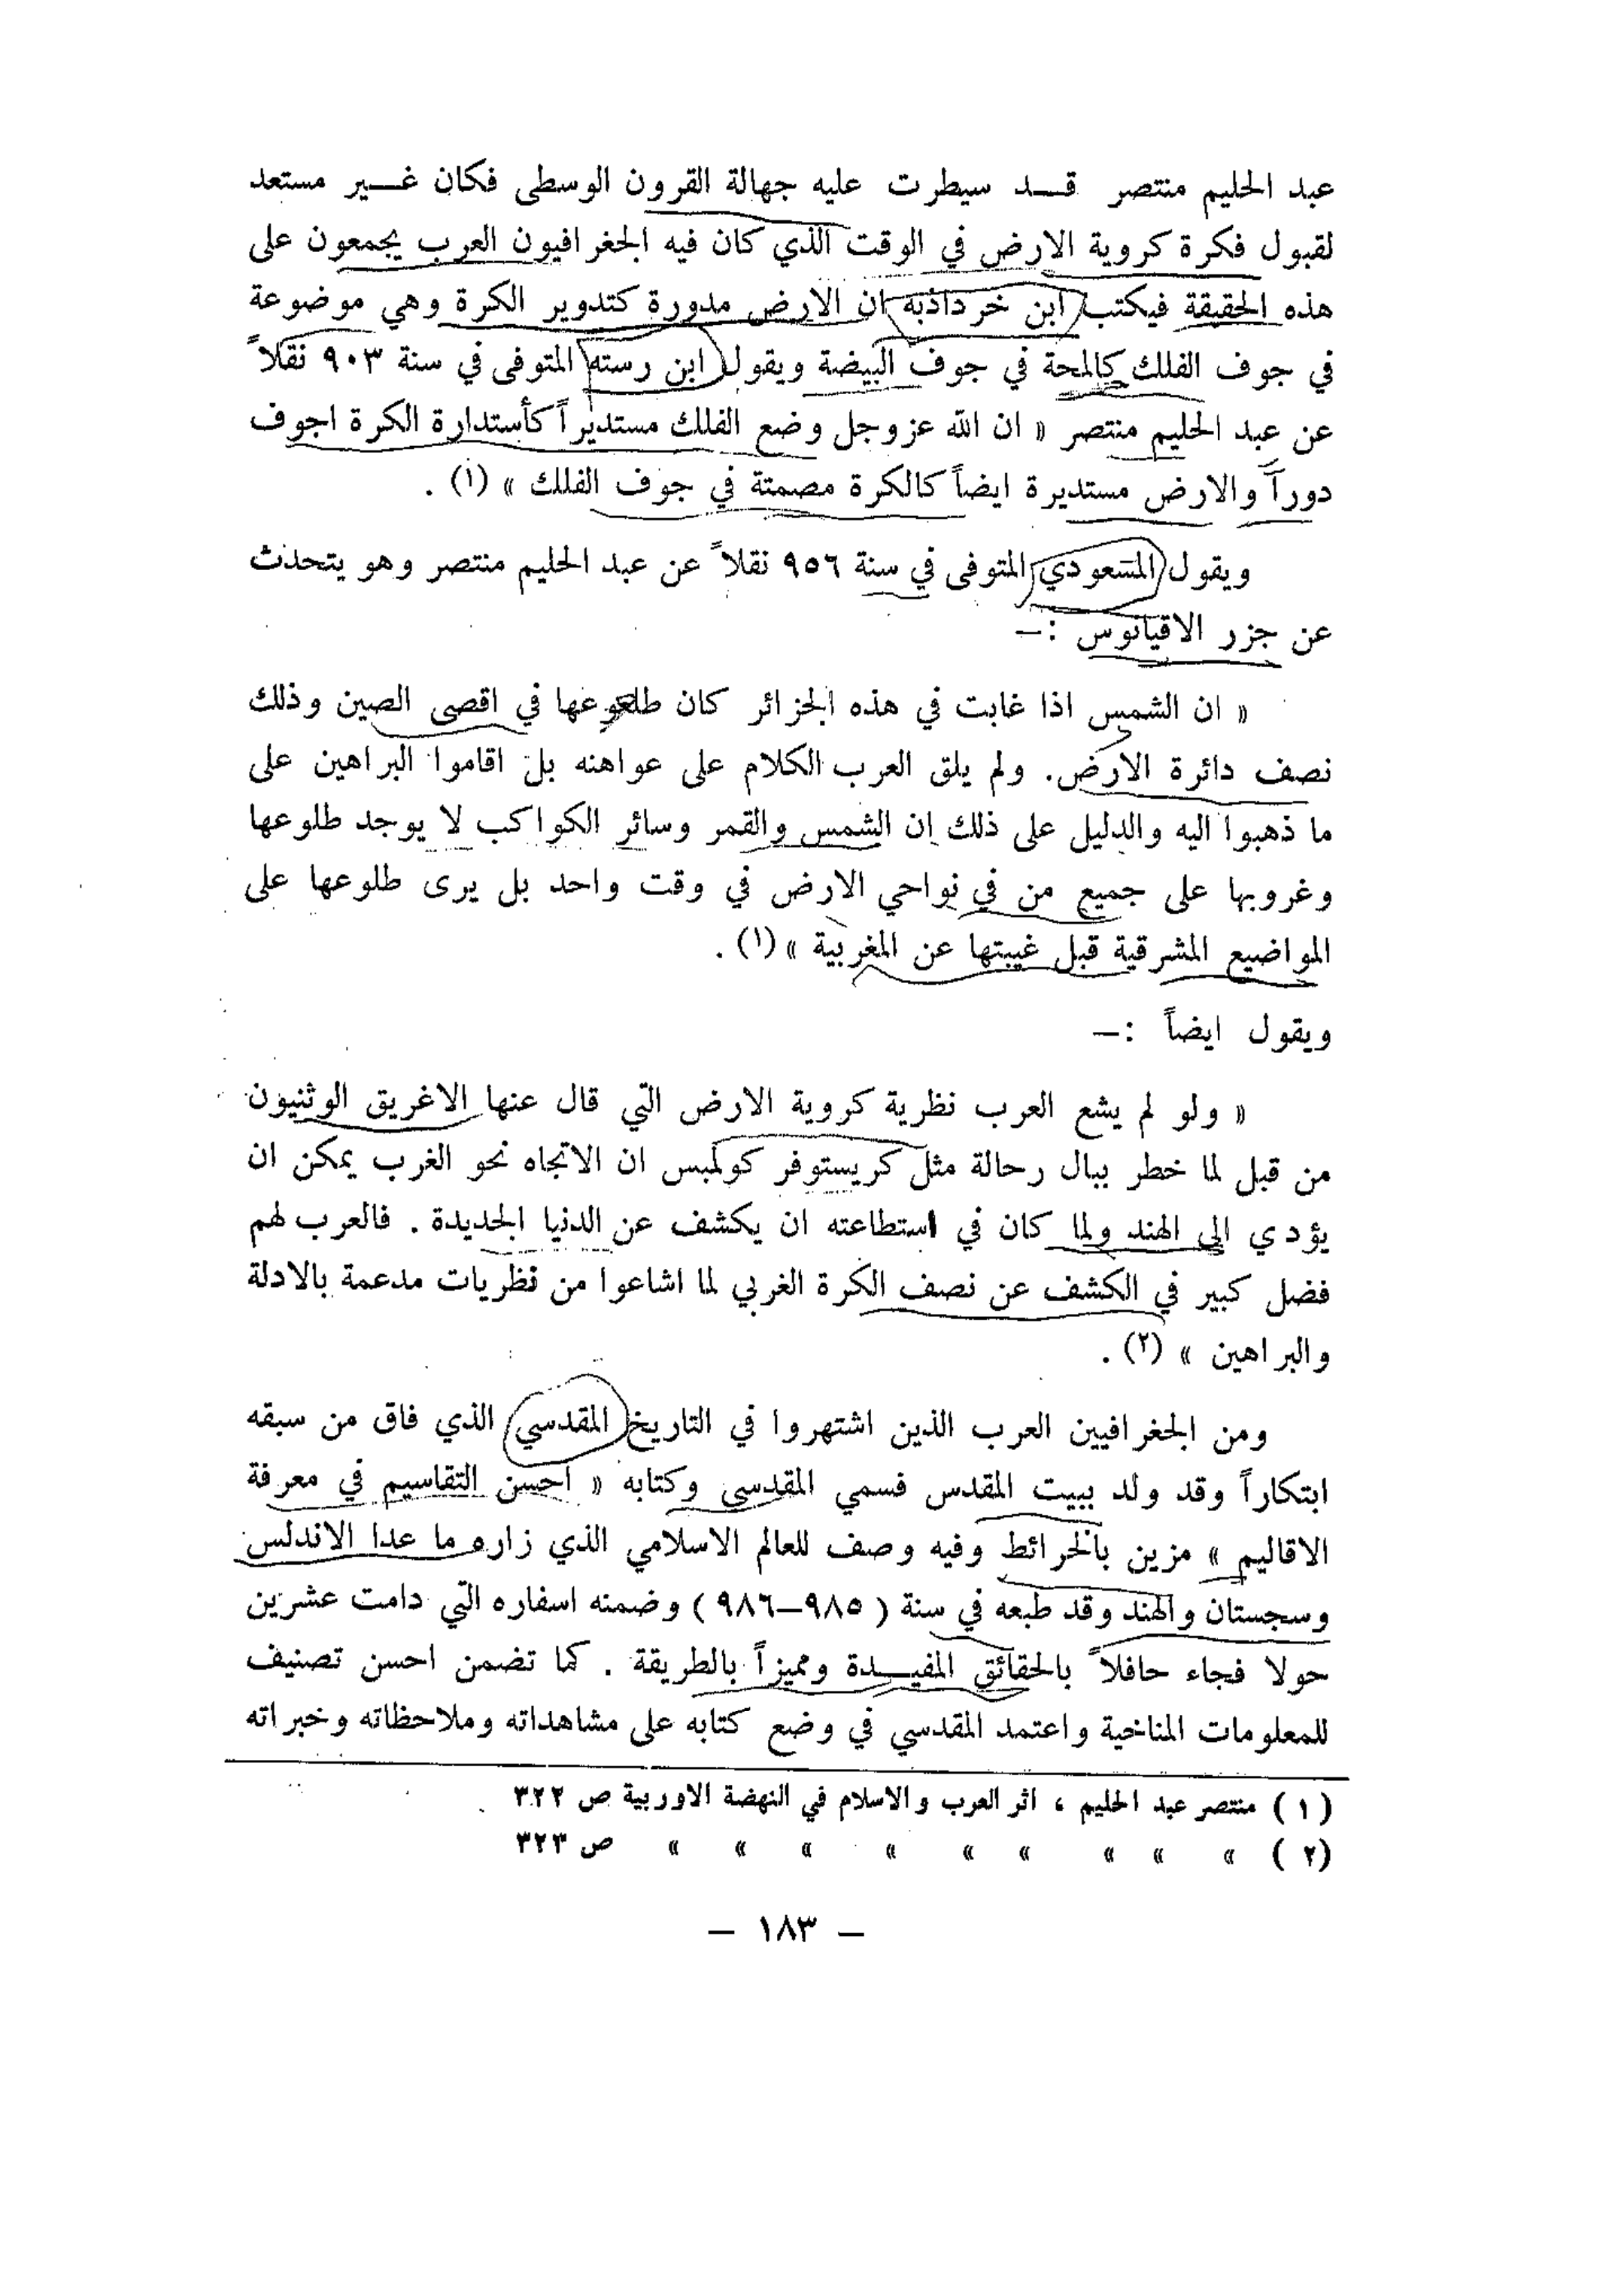 عبد الحليم منتصر قــد سيطرت عليه جهالة القرون الوسطى فكان غــير مستعد
لقبول فكرة كروية الارض في الوقت الذي كان فيه الجغرافيون العرب يجمعون على
هذه الحقيقة فيكتب ابن خرداذبه ان الارض مدورة كتدوير الكرة وهي موضوعة
في جوف الفلك كالمحة في جوف البيضة ويقول ابن رسته المتوفى في سنة ٩٠٣ نقلاً
عن عبد الحليم منتصر « ان الله عزوجل وضع الفلك مستديراً كأستدارة الكرة اجوف
دوراً والارض مستديرة ايضاً كالكرة مصمتة في جوف الفلك » (١) .
ويقول المسعودي المتوفى في سنة ٩٥٦ نقلاً عن عبد الحليم منتصر وهو يتحدث
عن جزر الاقيانوس :—
« ان الشمس اذا غابت في هذه الجزائر كان طلوعها في اقصى الصين وذلك
نصف دائرة الارض. ولم يلق العرب الكلام على عواهنه بل اقاموا البراهين على
ما ذهبوا اليه والدليل على ذلك ان الشمس والقمر وسائر الكواكب لا يوجد طلوعها
وغروبها على جميع من في نواحي الارض في وقت واحد بل يرى طلوعها على
المواضيع المشرقية قبل غيبتها عن المغربية » (١) .
ويقول ايضاً :—
« ولو لم يشع العرب نظرية كروية الارض التي قال عنها الاغريق الوثنيون
من قبل لما خطر ببال رحالة مثل كريستوفر كولمبس ان الاتجاه نحو الغرب يمكن ان
يؤدي الى الهند ولما كان في استطاعته ان يكشف عن الدنيا الجديدة . فالعرب لهم
فضل كبير في الكشف عن نصف الكرة الغربي لما اشاعوا من نظريات مدعمة بالادلة
والبراهين » (٢) .
ومن الجغرافيين العرب الذين اشتهروا في التاريخ المقدسي الذي فاق من سبقه
ابتكاراً وقد ولد ببيت المقدس فسمي المقدسي وكتابه « احسن التقاسيم في معرفة
الاقاليم » مزين بالخرائط وفيه وصف للعالم الاسلامي الذي زاره ما عدا الاندلس
وسجستان والهند وقد طبعه في سنة ( ٩٨٥—٩٨٦ ) وضمنه اسفاره التي دامت عشرين
حولا فجاء حافلاً بالحقائق المفيــدة ومميزاً بالطريقة . كما تضمن احسن تصنيف
للمعلومات المناخية واعتمد المقدسي في وضع كتابه على مشاهداته وملاحظاته وخبراته
( ١ ) منتصر عبد الحليم ، اثر العرب والاسلام في النهضة الاوربية ص ٣٢٢
( ٢ ) » » » » » » » » » ص ٣٢٣
— ١٨٣ —